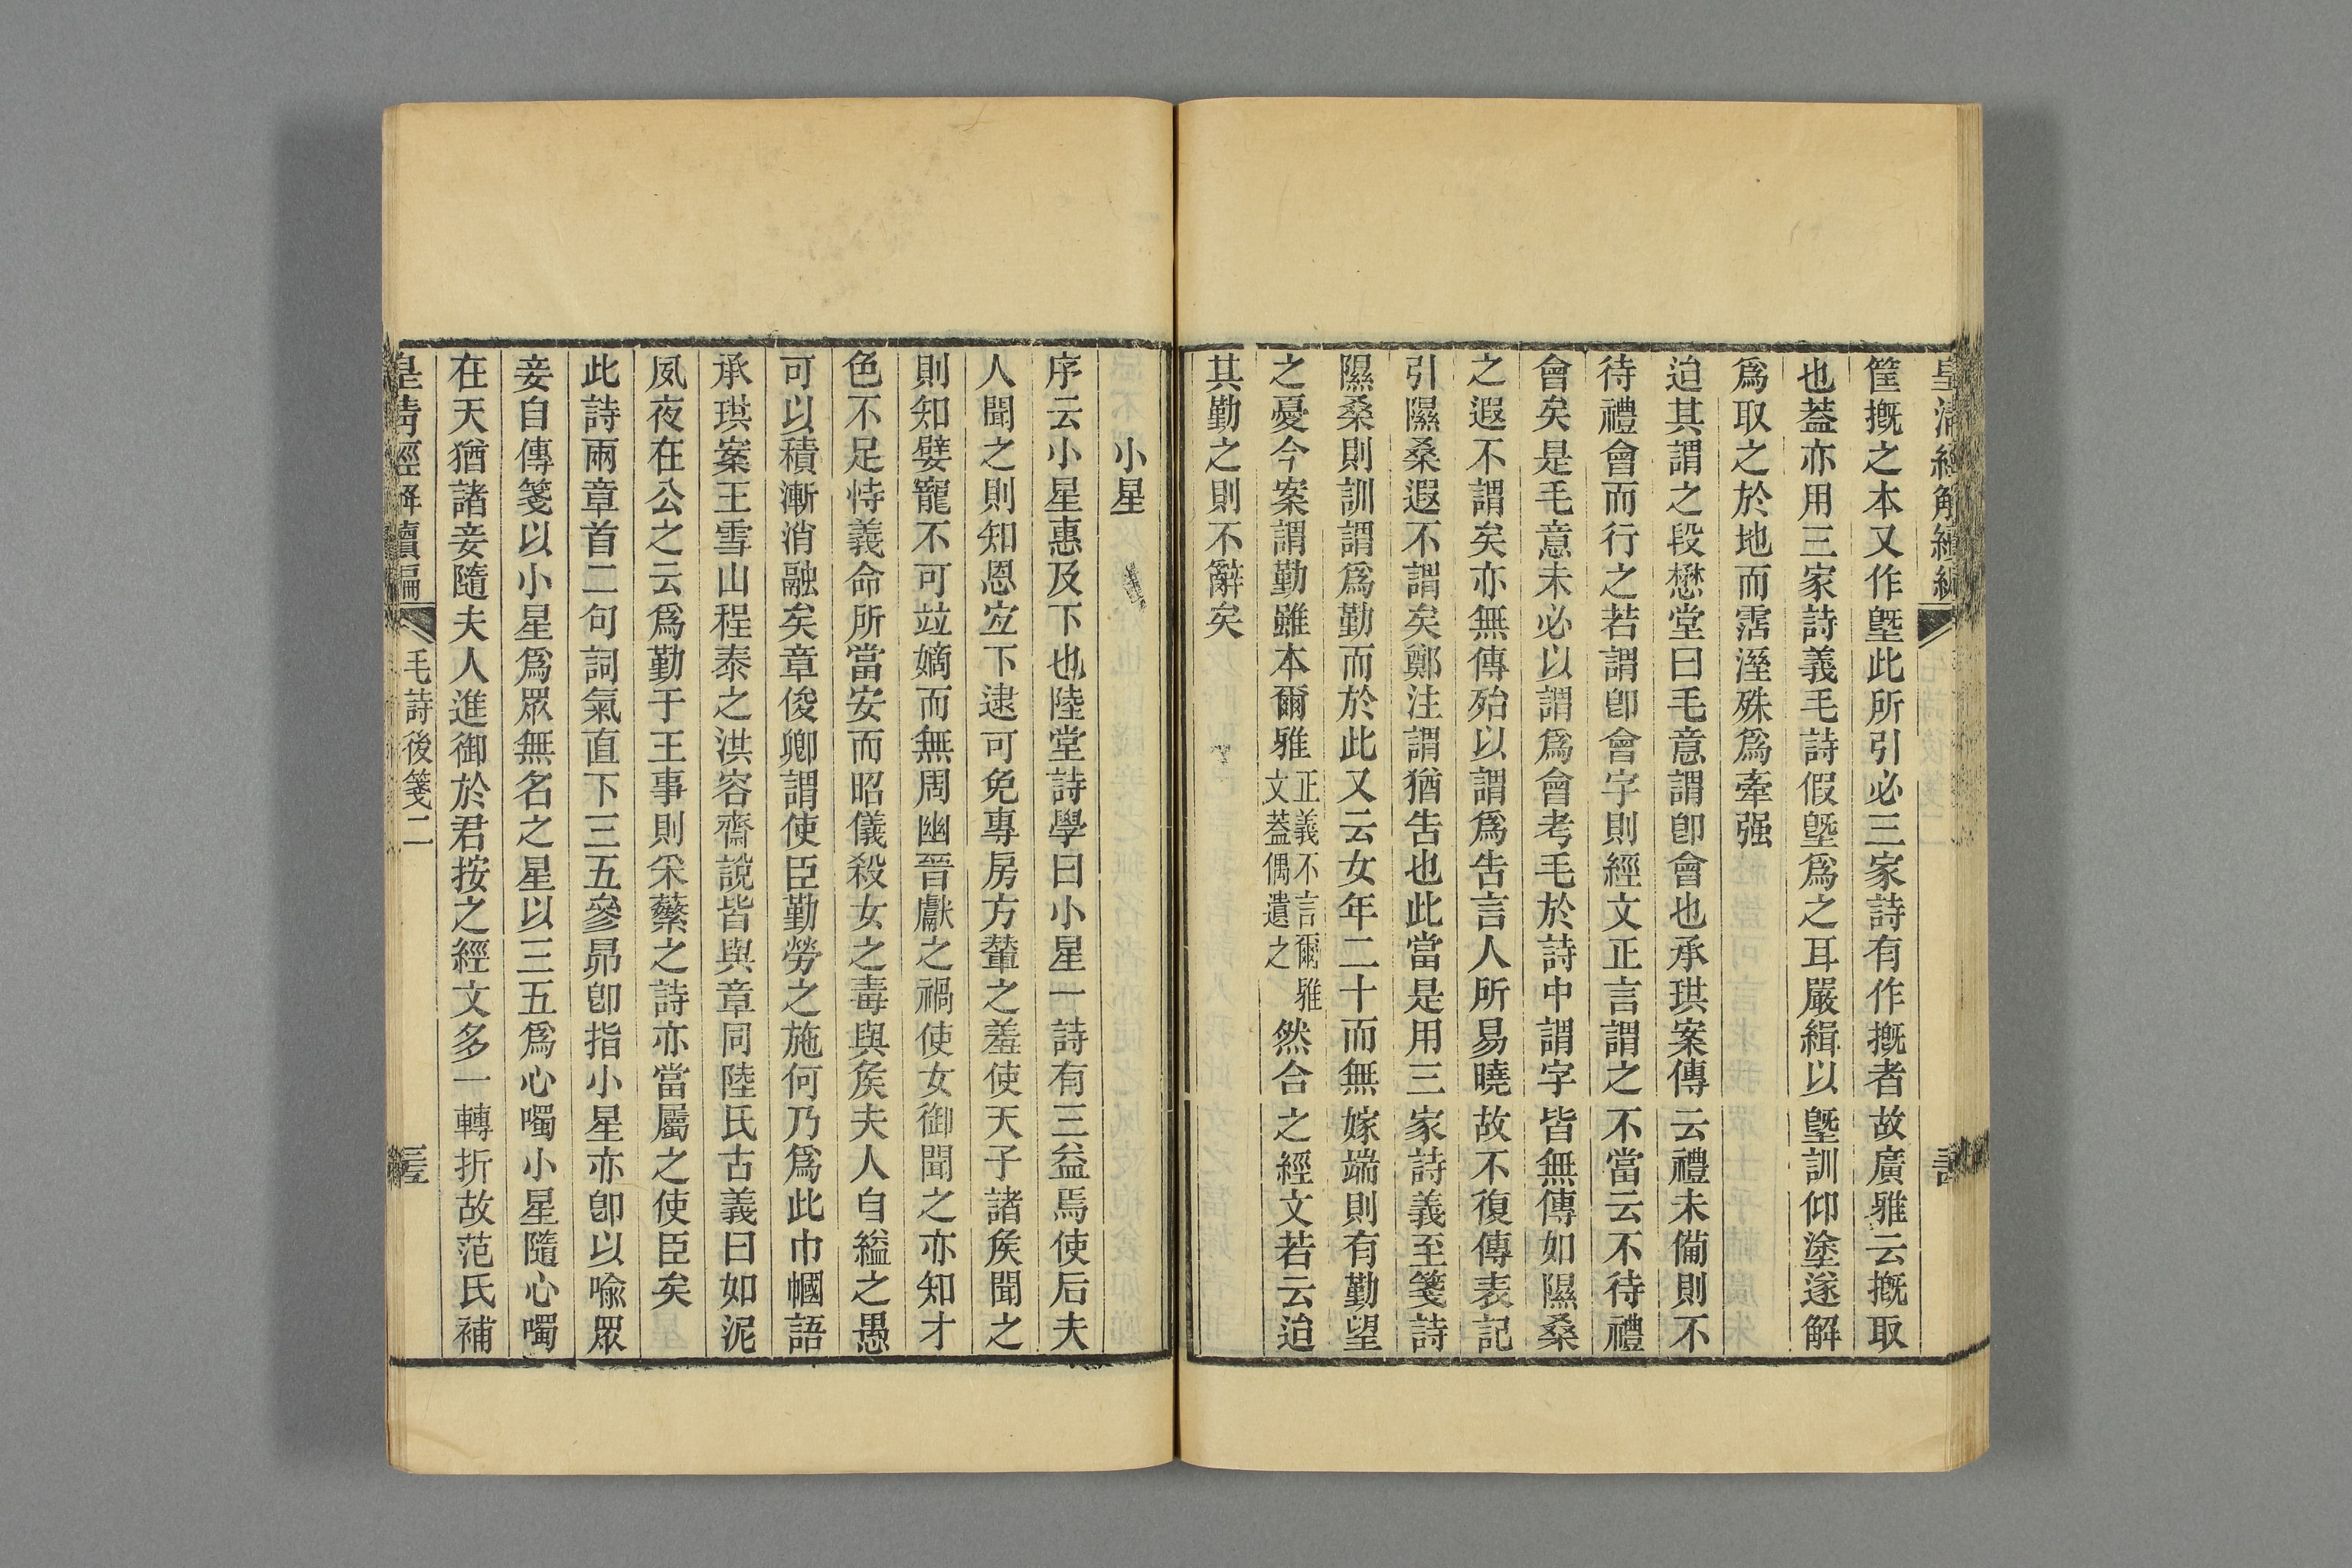 皇清經解續編
筐摡之本又作墍此所引必三家詩有作摡者故廣雅云摡取
也葢亦用三家詩義毛詩假墍爲之耳嚴緝以墍訓仰塗遂解
爲取之於地而霑溼殊爲牽强
迨其謂之段懋堂曰毛意謂卽會也承珙案傳云禮未備則不
待禮會而行之若謂卽會字則經文正言謂之不當云不待禮
會矣是毛意未必以謂爲會考毛於詩中謂字皆無傳如隰桑
之遐不謂矣亦無傳殆以謂爲告言人所易曉故不復傳表記
引隰桑遐不謂矣鄭注謂猶告也此當是用三家詩義至箋詩
隰桑則訓謂爲勤而於此又云女年二十而無嫁端則有勤望
之憂今案謂勤雖本爾雅正義不言爾雅文葢偶遺之然合之經文若云迨
其勤之則不辭矣
小星
序云小星惠及下也陸堂詩學曰小星一詩有三益焉使后夫
人聞之則知恩宐下逮可免專房方輦之羞使天子諸矦聞之
則知嬖寵不可竝嫡而無周幽晉獻之禍使女御聞之亦知才
色不足恃義命所當安而昭儀殺女之毒與矦夫人自縊之愚
可以積漸消融矣章俊卿謂使臣勤勞之施何乃爲此巾幗語
承珙案王雪山程泰之洪容齋說皆與章同陸氏古義曰如泥
夙夜在公之云爲勤于王事則采蘩之詩亦當屬之使臣矣
此詩兩章首二句詞氣直下三五參昴卽指小星亦卽以喩眾
妾自傳箋以小星爲眾無名之星以三五爲心噣小星隨心噣
在天猶諸妾隨夫人進御於君按之經文多一轉折故范氏補
皇清經解續編
毛詩後箋二